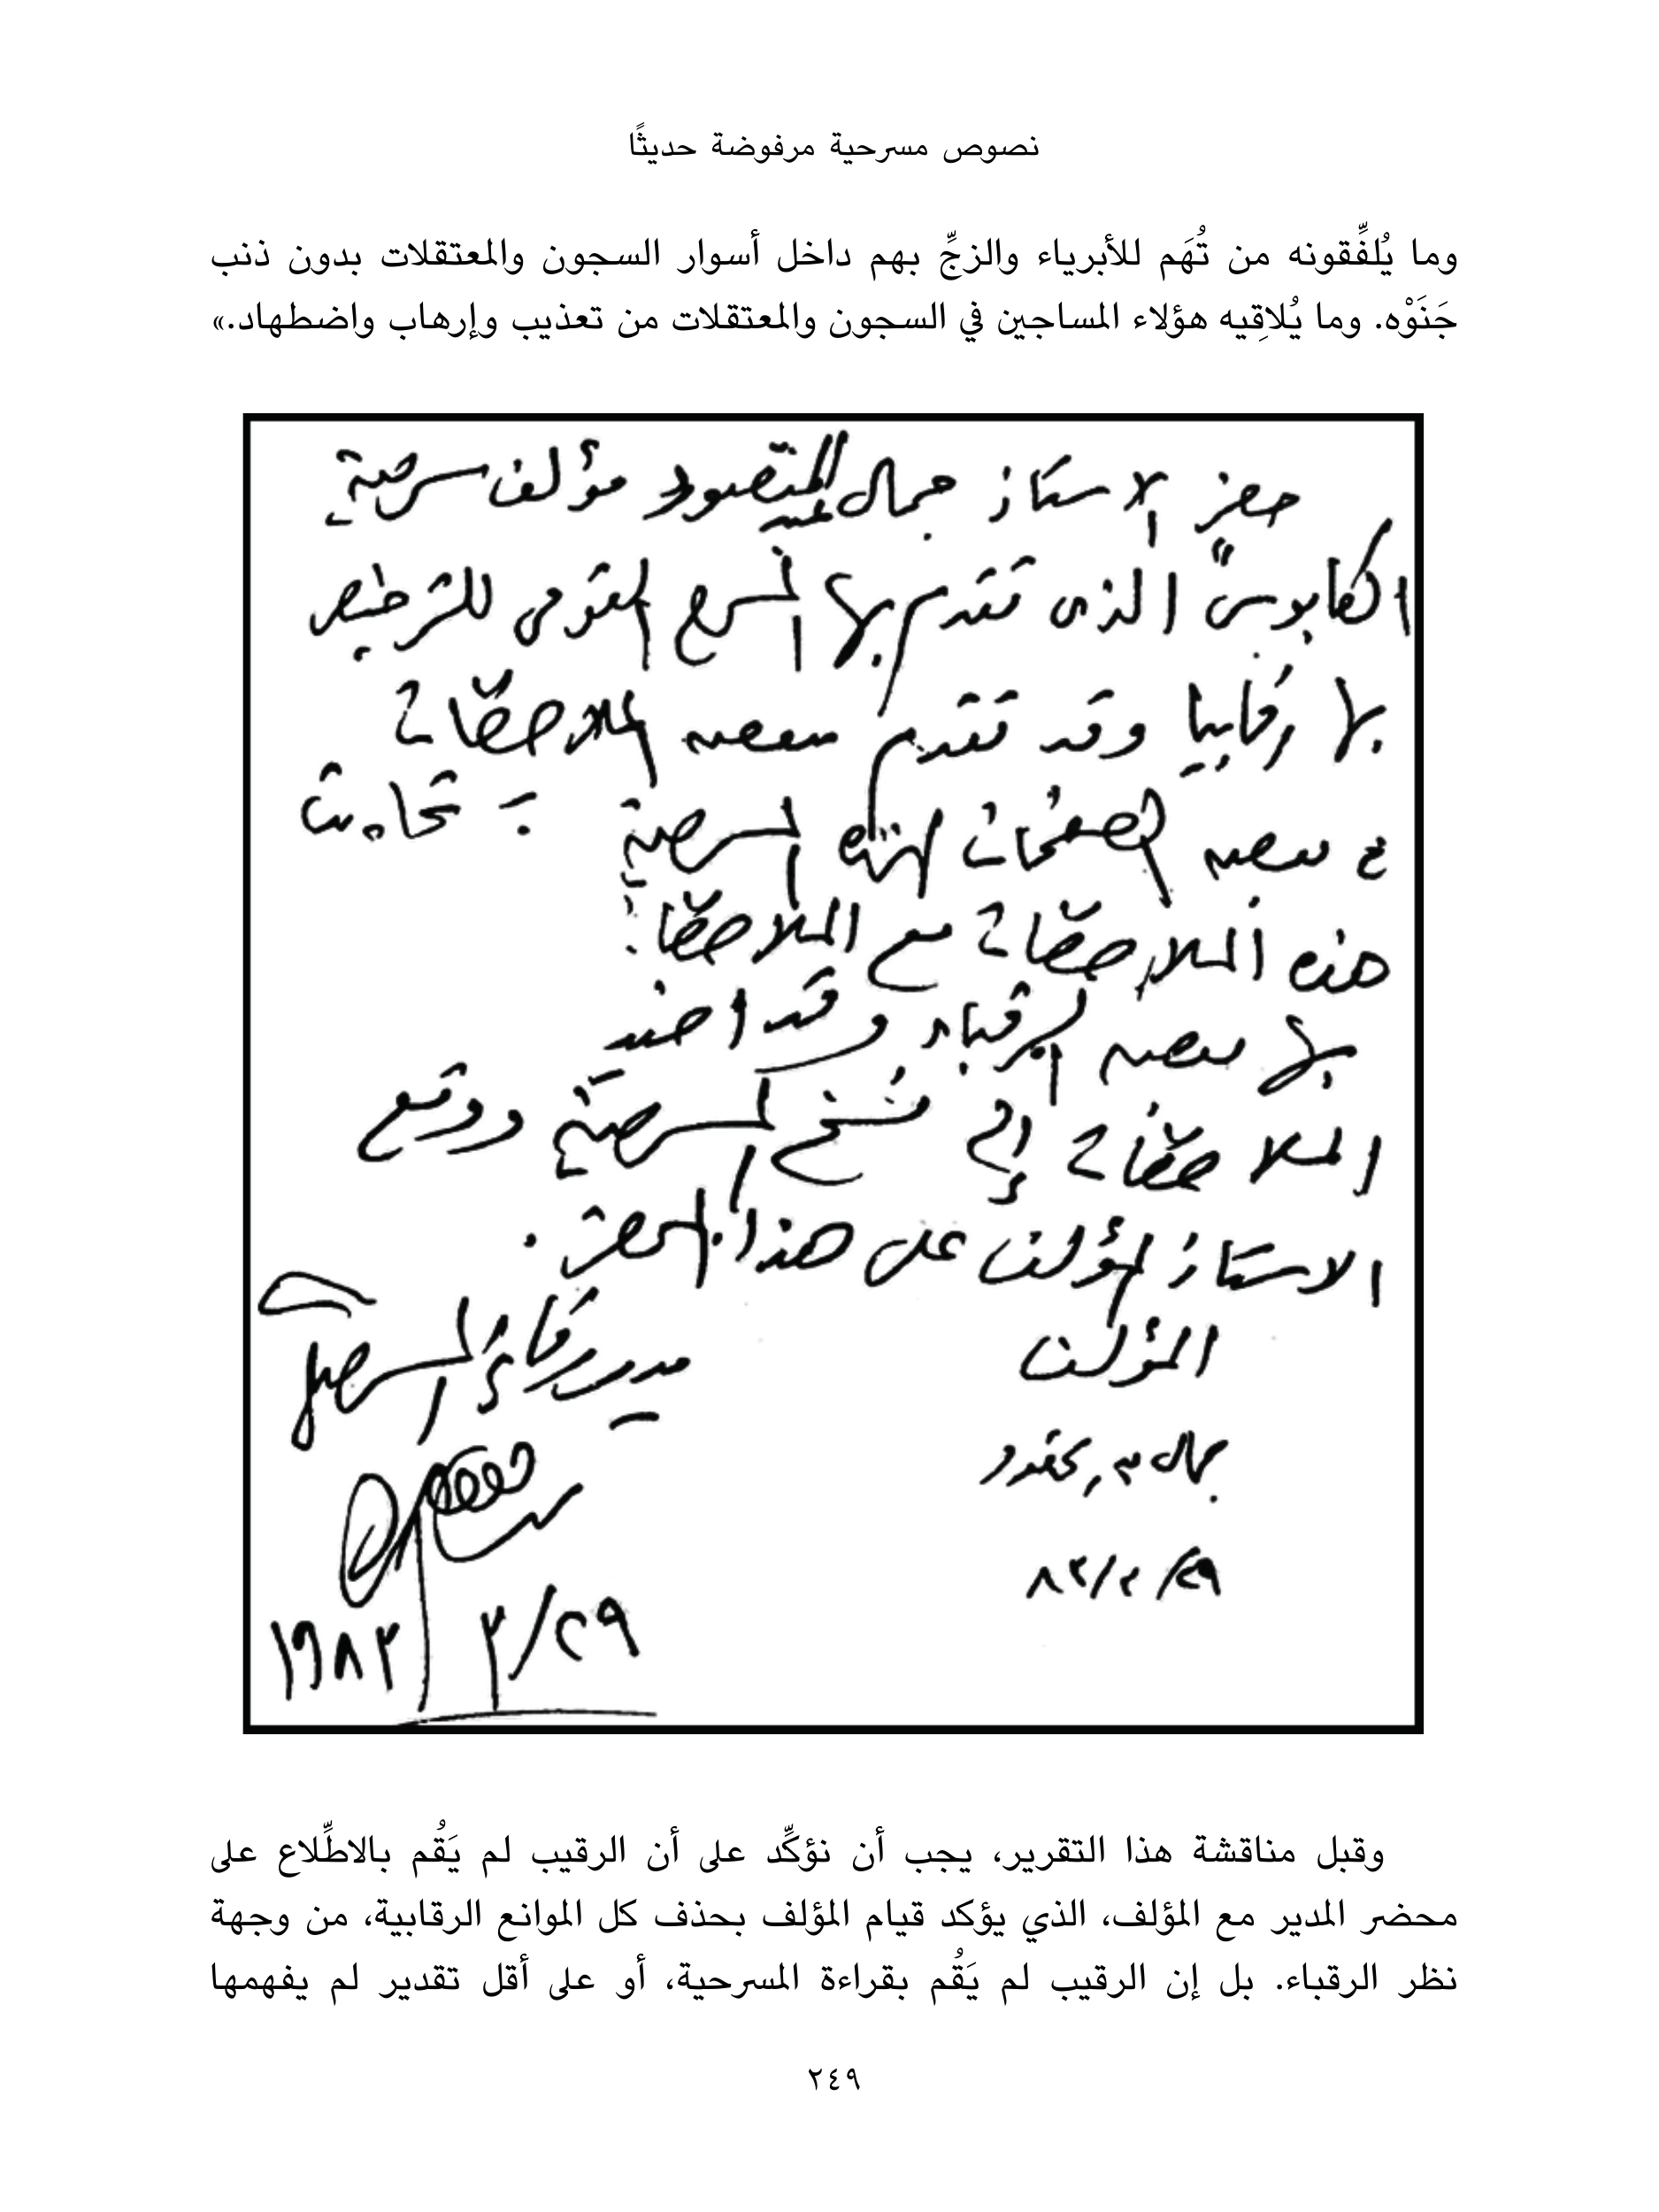 نصوص مسرحية مرفوضة حديثًا
وما يُلفِّقونه من تُهَم للأبرياء والزجِّ بهم داخل أسوار السجون والمعتقلات بدون ذنب
جَنَوْه. وما يُلاقِيه هؤلاء المساجين في السجون والمعتقلات من تعذيب وإرهاب واضطهاد.»
حضر الاستاذ جمال عبد المقصود مؤلف مسرحية
"الكابوس" الذى تقدم بها المسرح القومى للترخيص
بها رقابيا وقد تقدم ببعض الملاحظات
فى بعض الصفحات لهذه المسرحية
هذه الملاحظات مع الملاحظات
بها بعض الرقباء وقد اضيفت
الملاحظات إلى نسخ المسرحية ووقع
الاستاذ المؤلف على هذا المحضر.
المؤلف
مدير رقابة المسرحيات
جمال عبد المقصود
٢٩/٣/٨٣
٢٩/٣/١٩٨٣
وقبل مناقشة هذا التقرير، يجب أن نؤكِّد على أن الرقيب لم يَقُم بالاطِّلاع على
محضر المدير مع المؤلف، الذي يؤكد قيام المؤلف بحذف كل الموانع الرقابية، من وجهة
نظر الرقباء. بل إن الرقيب لم يَقُم بقراءة المسرحية، أو على أقل تقدير لم يفهمها
٢٤٩